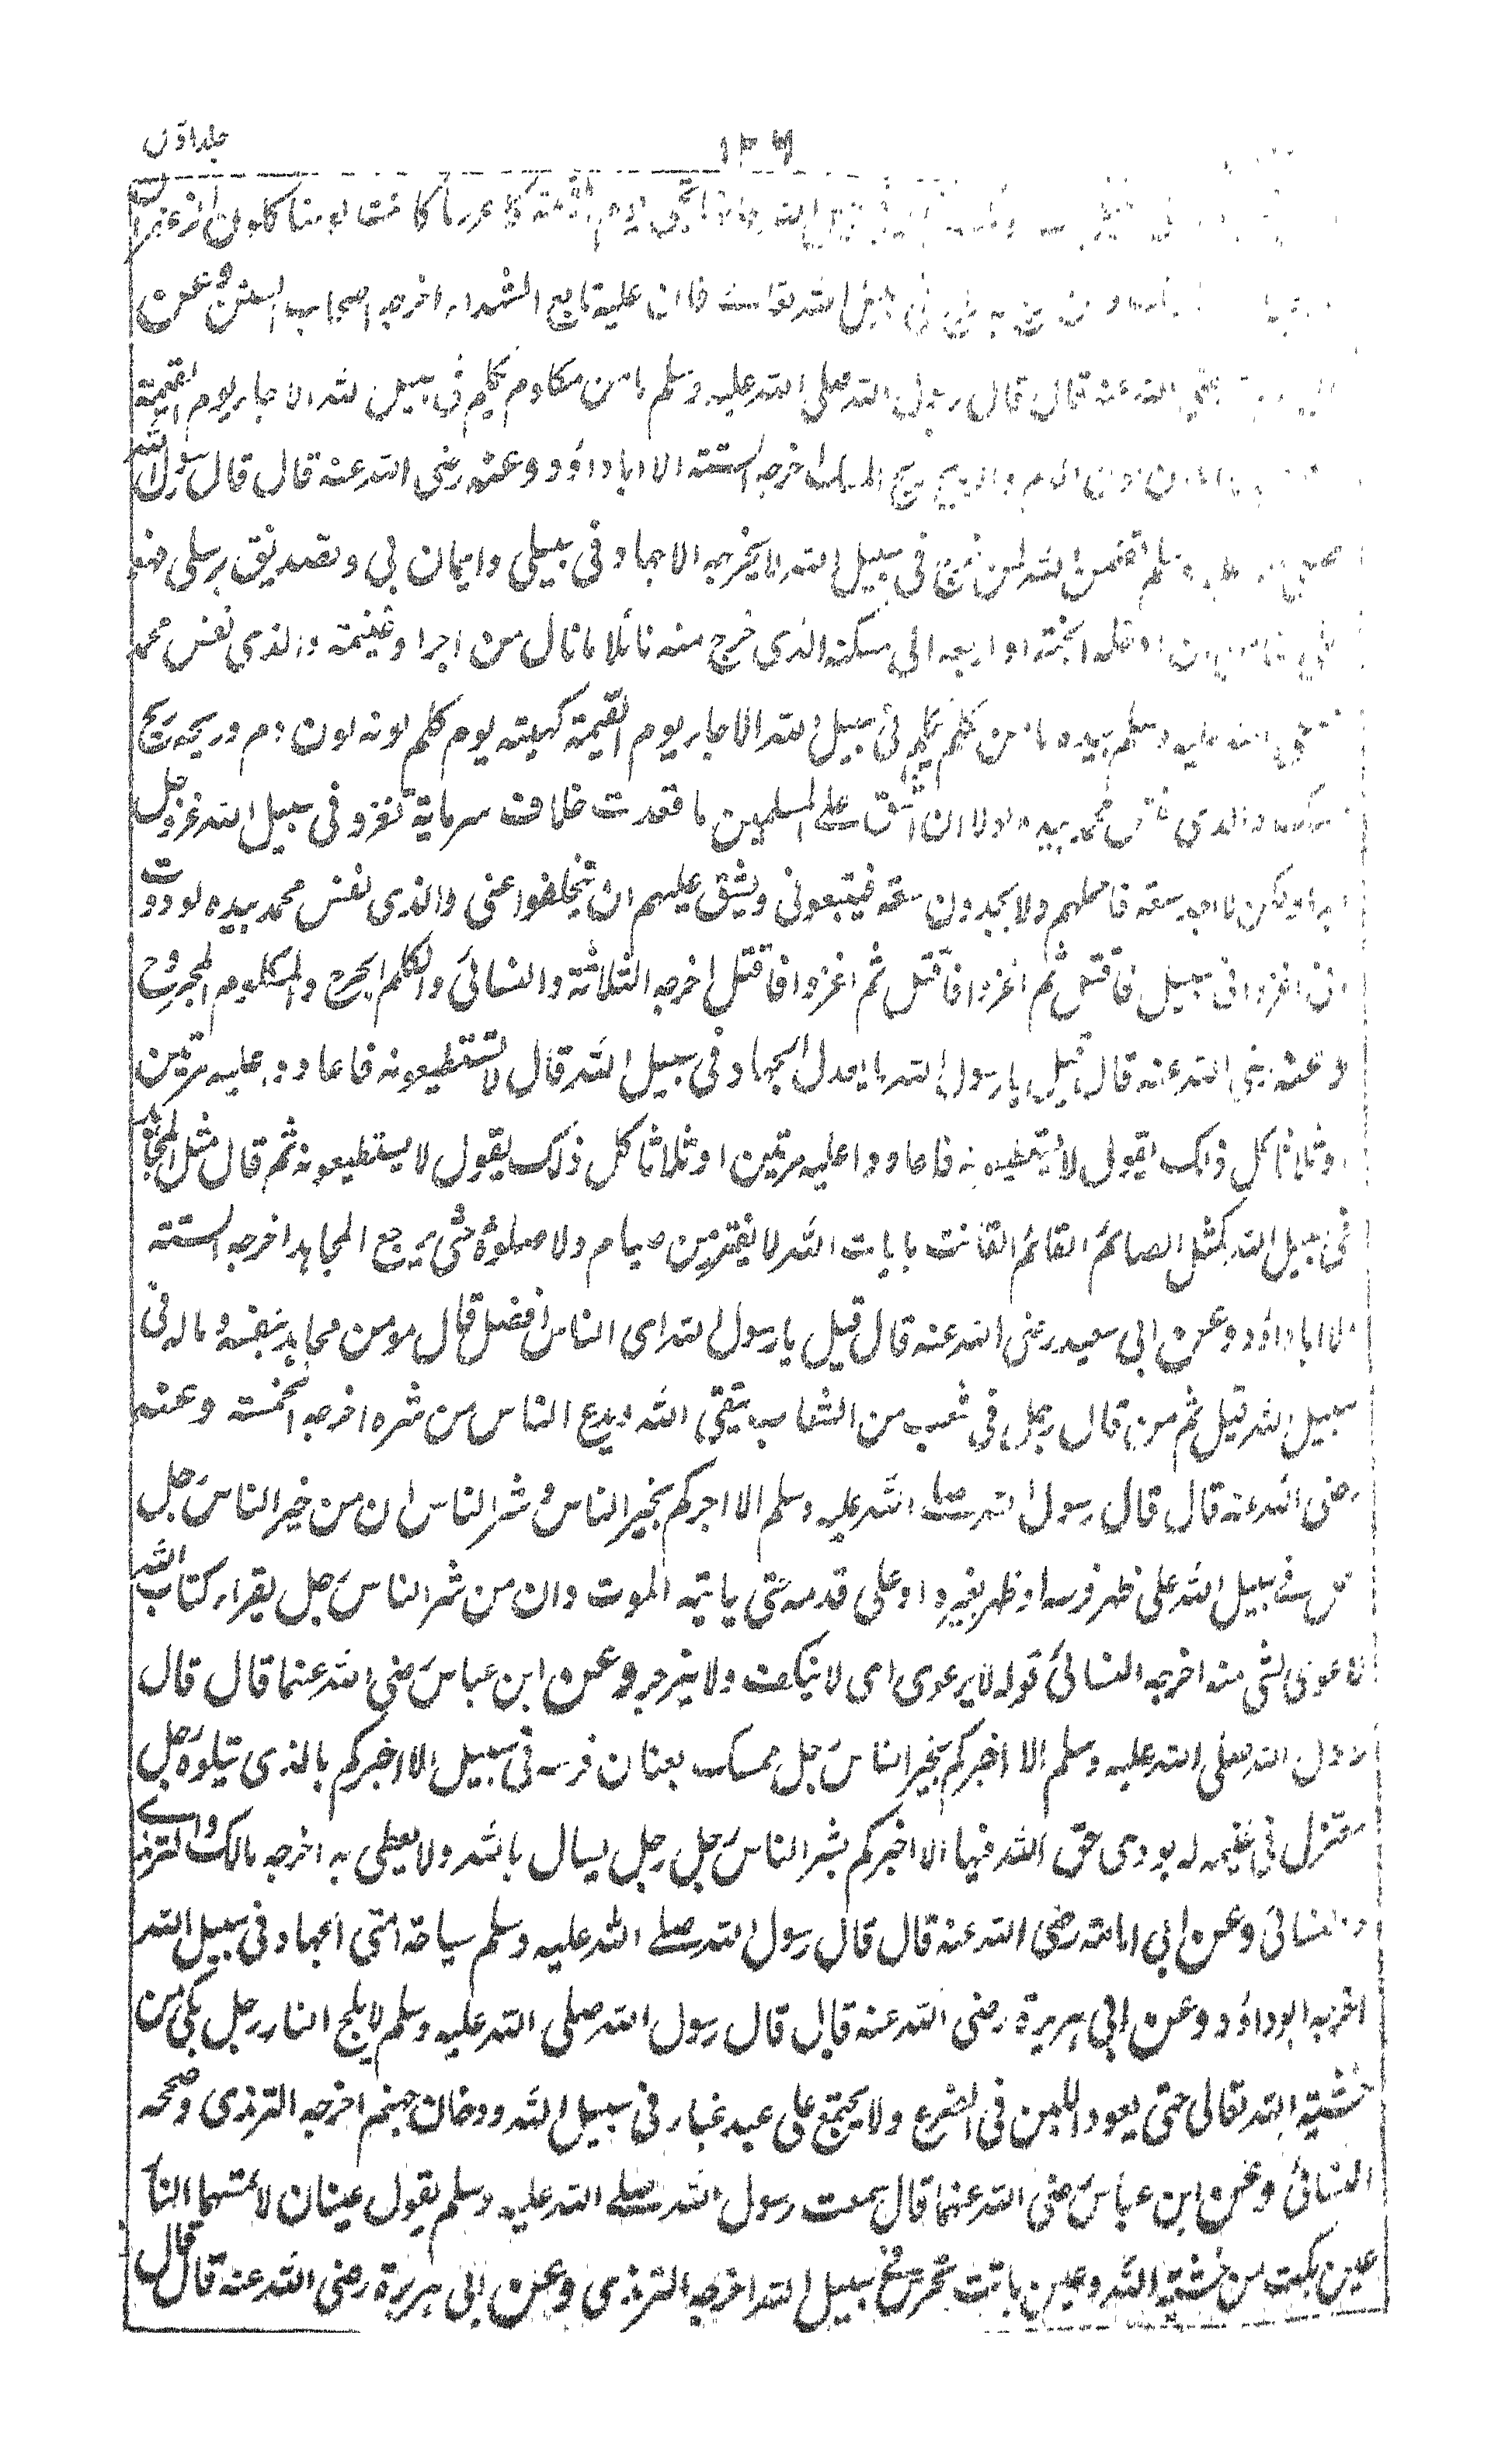 جلد اوّل
۱۲۶
الله تجئ يوم القيمة كاغزر ما كانت لونها كلون الزعفران
في سبيل الله تعالى فان عليه طابع الشهداء اخرجه اصحاب السنن وعن
رضي الله عنه قال قال رسول الله صلى الله عليه وسلم ما من مكلوم يكلم في سبيل الله الا جاء يوم القيمة
لون الدم والريح ريح المسك اخرجه الستة الا ابا داؤد وعنه رضى الله عنه قال قال رسول الله
صلى الله عليه وسلم تضمن الله لمن خرج في سبيل الله لا يخرجه الا جهاد في سبيلى وايمان بي وتصديق برسلى فهو
على ضامن ان ادخله الجنة او ارجعه الى مسكنه الذى خرج منه نائلا ما نال من اجر او غنيمة والذى نفس محمد
صلى الله عليه وسلم بيده ما من كلم يكلم في سبيل الله الا جاء يوم القيمة كهيئته يوم كلم لونه لون دم وريحه ريح
مسك والذى نفس محمد بيده لولا ان اشق على المسلمين ما قعدت خلاف سرية تغزو في سبيل الله عز وجل
ابدا ولكن لا اجد سعة فاحملهم ولا يجدون سعة فيتبعونى ويشق عليهم ان يتخلفوا عنى والذى نفس محمد بيده لوددت
انى اغزو في سبيل فاقتل ثم اغزوا فاقتل ثم اغزوا فاقتل اخرجه الثلاثة والنسائى والكلم الجرح والمكلوم المجروح
وعنه رضى الله عنه قال قيل يا رسول الله ما يعدل الجهاد في سبيل الله قال لا تستطيعونه فاعادوا عليه مرتين
او ثلاثا كل ذلك يقول لا تستطيعونه فاعادوا عليه مرتين او ثلاثا كل ذلك يقول لا يستطيعونه ثم قال مثل المجاهد
في سبيل الله كمثل الصائم القائم القانت بايات الله لا يفتر من صيام ولا صلوة حتى يرجع المجاهد اخرجه الستة
الا ابا داؤد وعن ابى سعيد رضى الله عنه قال قيل يا رسول الله اى الناس افضل قال مومن مجاهد بنفسه وماله في
سبيل الله قيل ثم من قال رجل في شعب من الشعاب يتقى الله ويدع الناس من شره اخرجه الخمسة وعنه
رضى الله عنه قال قال رسول الله صلے الله عليه وسلم الا اخبركم بخير الناس وشر الناس ان من خير الناس رجل
عمل في سبيل الله على ظهر فرسه او ظهر بعيره او على قدمه حتى ياتيه الموت وان من شر الناس رجل يقراء كتاب الله
لا يرعوى لشئ منه اخرجه النسائى قوله لا يرعوى اى لا ينكف ولا ينزجر وعن ابن عباس رضى الله عنهما قال قال
رسول الله صلى الله عليه وسلم الا اخبركم بخير الناس رجل ممسك بعنان فرسه في سبيل الا اخبركم بالذى يتلوه رجل
معتزل في غنيمه له يودى حق الله فيها الا اخبركم بشر الناس رجل رجل يسال بالله ولا يعطى به اخرجه مالك والترمذے
والنسائى وعن ابى امامة رضى الله عنه قال قال رسول الله صلے الله عليه وسلم سياحة امتى الجهاد في سبيل الله
اخرجه ابو داؤد وعن ابى هريرة رضى الله عنه قال قال رسول الله صلى الله عليه وسلم لا يلج النار رجل بكى من
خشية الله تعالى حتى يعود اللبن في الضرع ولا يجتمع على عبد غبار في سبيل الله ودخان جهنم اخرجه الترمذى وصححه
النسائى وعن ابن عباس رضى الله عنهما قال سمعت رسول الله صلے الله عليه وسلم يقول عينان لا تمسهما النار
عين بكت من خشية الله وعين باتت تحرس في سبيل الله اخرجه الترمذى وعن ابى هريرة رضى الله عنه قال قال